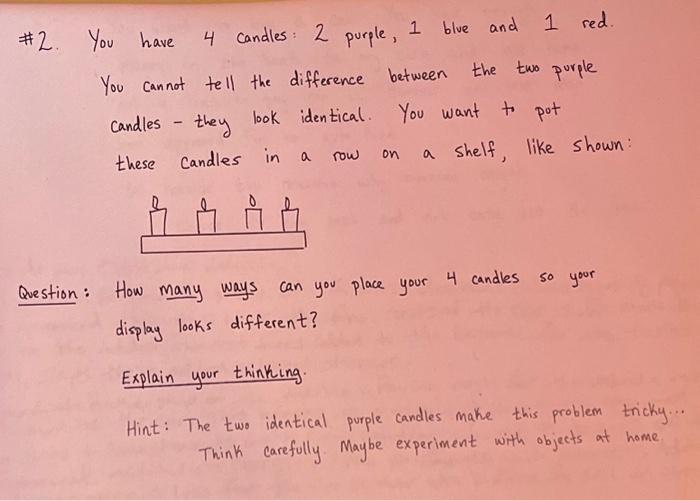 #2. You have 4 candles: 2 purple, 1 blue and 1 red.
You cannot tell the difference between the two purple
candles - they look identical. You want to put
these candles in a row on a shelf, like shown:
Question: How many ways can you place your 4 candles so your
display looks different?
Explain your thinking.
Hint: The two identical purple candles make this problem tricky...
Think carefully. Maybe experiment with objects at home.